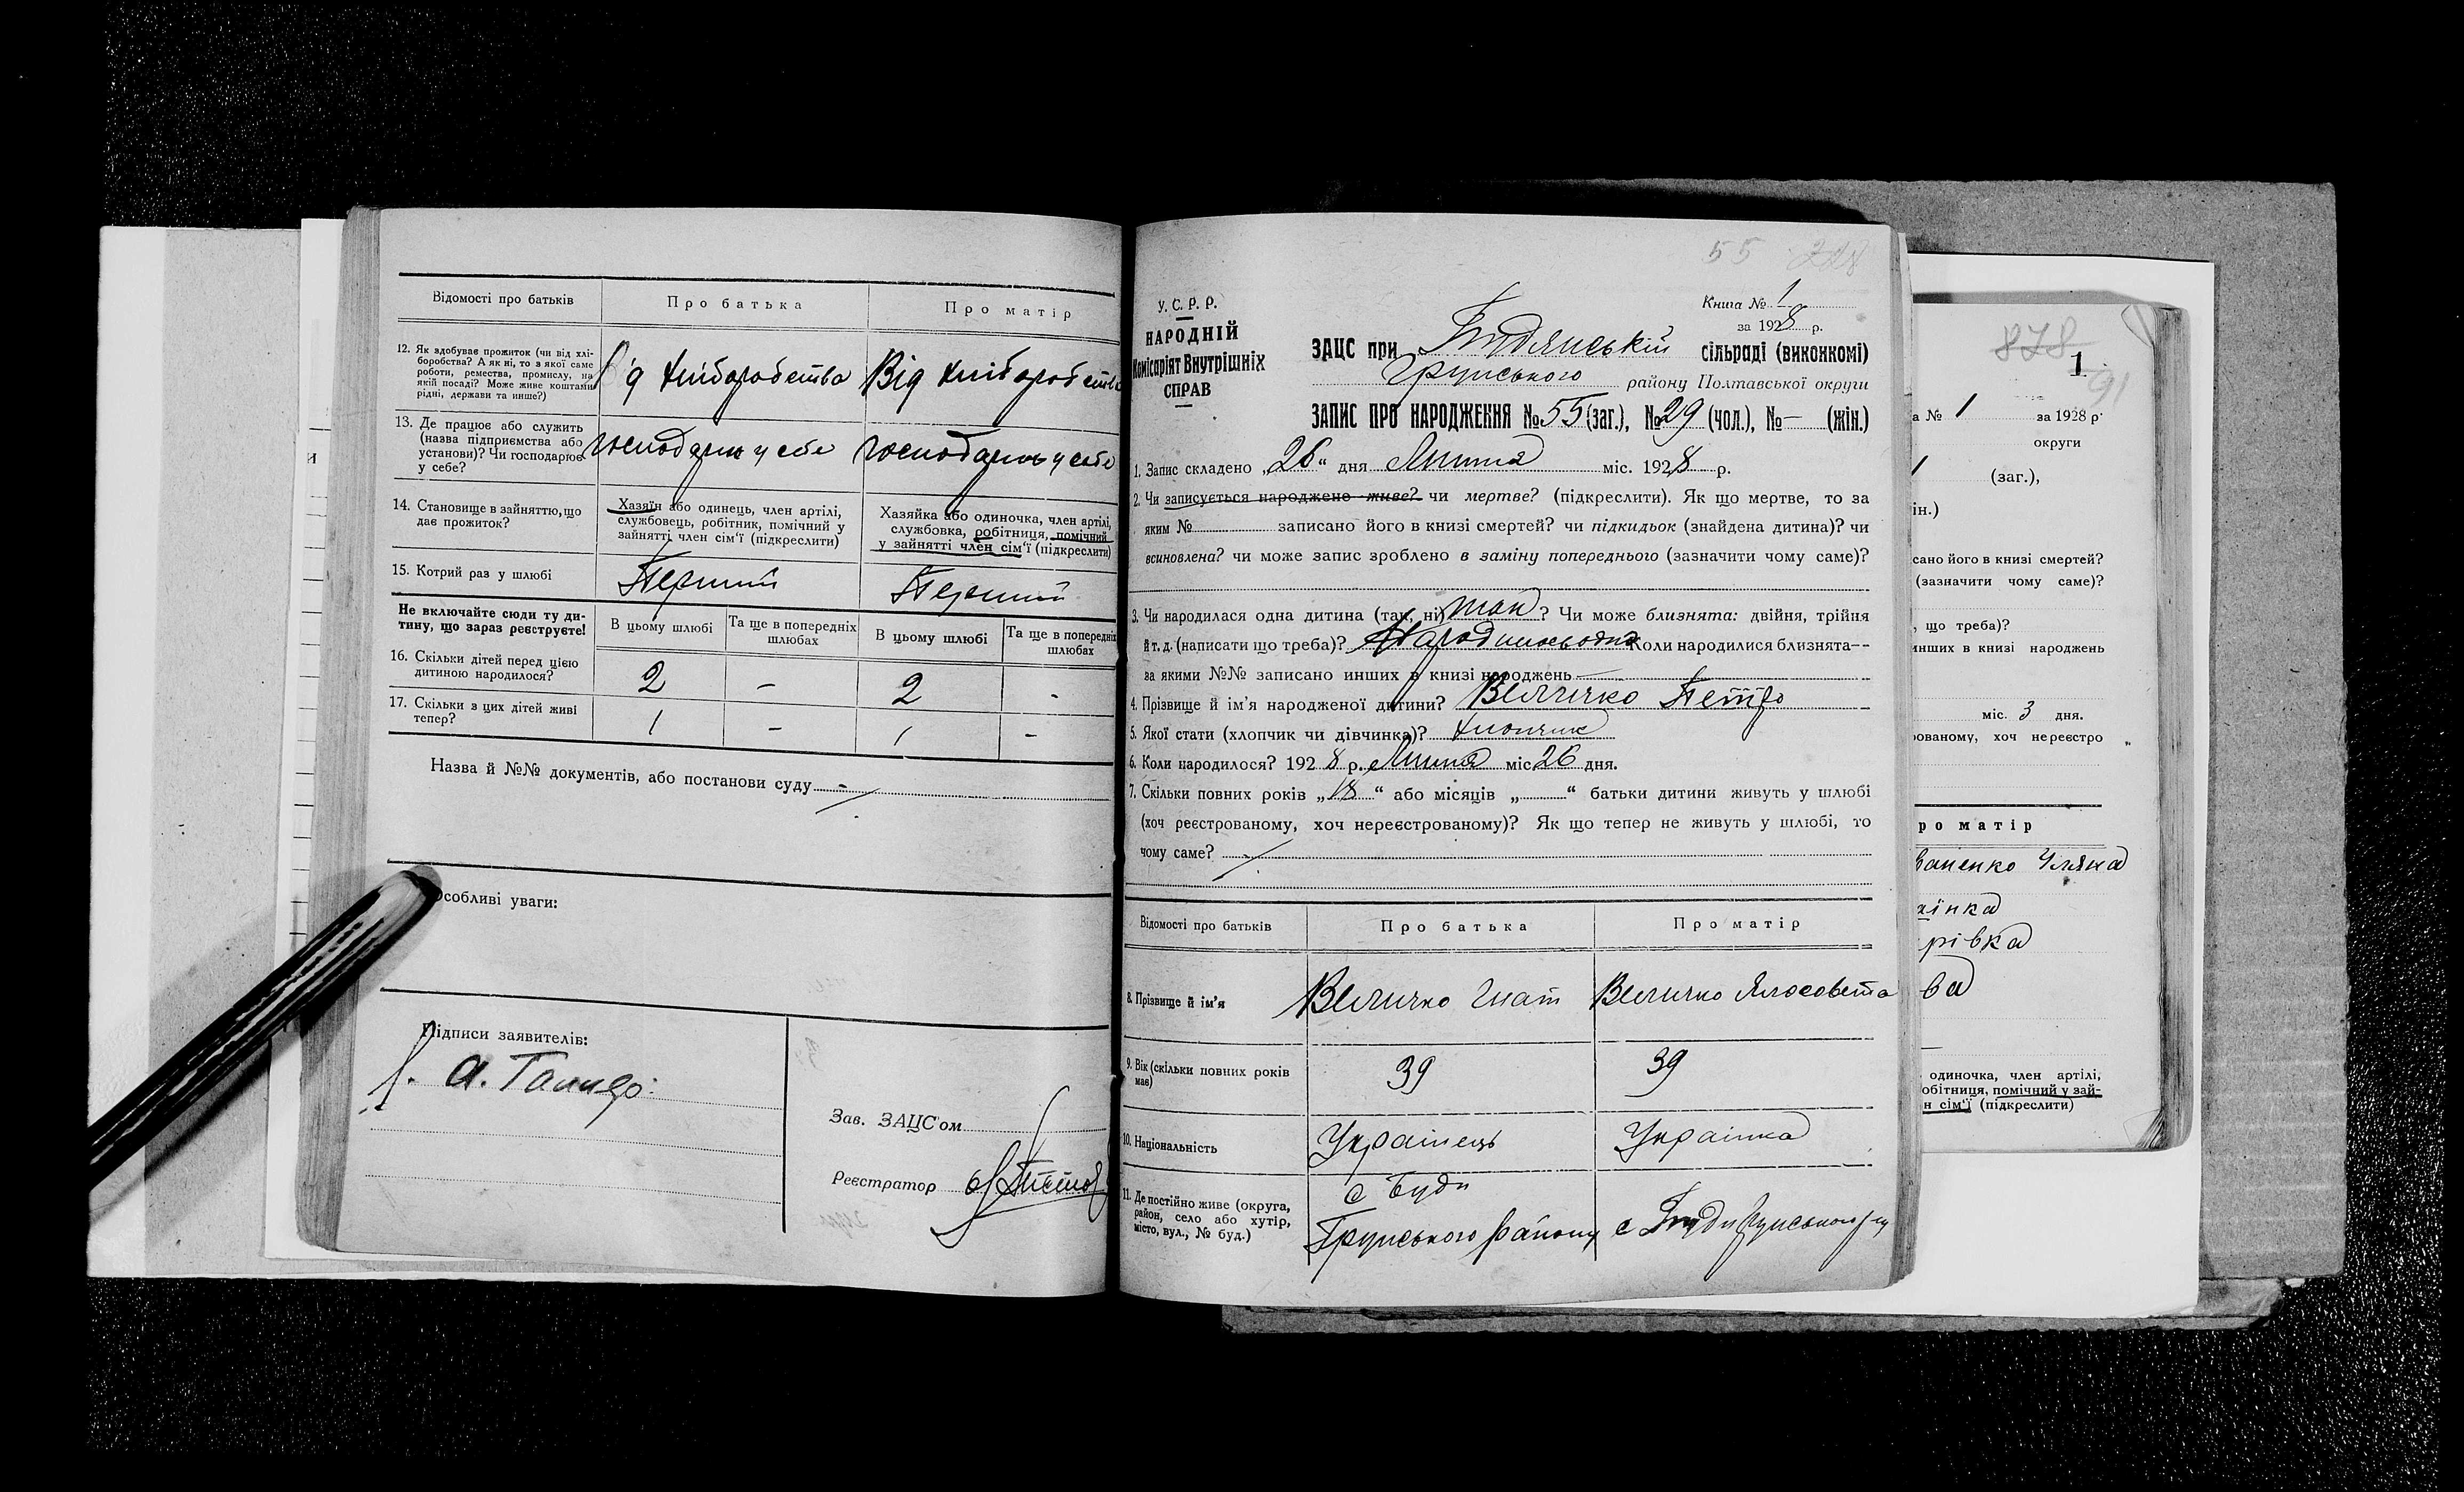 Відомості про батьків
Про батька
Про матір
12. Як здобуває прожиток (чи від хлі-
боробства? А як ні, то з якої саме
роботи, ремества, промислу, на
якій посаді? Може живе коштами
рідні, держави та инше?)
Від хліборобства
Від хліборобства
13. Де працює або служить
(назва підприємства або
установи)? Чи господарює
у себе?
господарює у себе
господарює у себе
14. Становище в зайняттю, що
дає прожиток?
Хазяїн або одинець, член артілі,
службовець, робітник, помічний у
зайнятті член сім'ї (підкреслити)
Хазяйка або одиночка, член артілі,
службовка, робітниця, помічний
у зайнятті член сім'ї (підкреслити)
15. Котрий раз у шлюбі
Перший
Перший
Не включайте сюди ту ди-
тину, що зараз реєструєте!
В цьому шлюбі
Та ще в попередніх
шлюбах
В цьому шлюбі
Та ще в попередніх
шлюбах
16. Скільки дітей перед цією
дитиною народилося?
2 - 2 -
17. Скільки з цих дітей живі
тепер?
1 - 1 -
Назва й №№ документів, або постанови суду -
Особливі уваги:
Підписи заявителів:
Зав. ЗАЦС'ом
Реєстратор
55 228
У. С. Р. Р.
НАРОДНІЙ
Комісаріят Внутрішніх
СПРАВ
Книга № 1
за 1928 р.
ЗАЦС при Будянській сільраді (виконкомі)
Грунського району Полтавської округи
ЗАПИС ПРО НАРОДЖЕННЯ № 55 (заг.), № 29 (чол.), № — (жін.)
1. Запис складено „26“ дня Липня міс. 1928 р.
2. Чи записується народжене живе? чи мертве? (підкреслити). Як що мертве, то за
яким № записано його в книзі смертей? чи підкидьок (знайдена дитина)? чи
всиновлена? чи може запис зроблено в заміну попереднього (зазначити чому саме)?
3. Чи народилася одна дитина (так, ні) так? Чи може близнята: двійня, трійня
й т. д. (написати що треба)? Коли народилися близнята—
за якими №№ записано инших в книзі народжень
4. Прізвище й ім'я народженої дитини? Величко Петро
5. Якої стати (хлопчик чи дівчинка)? хлопчик
6. Коли народилося? 1928 р. Липня міс. 26 дня.
7. Скільки повних років „18“ або місяців „ “ батьки дитини живуть у шлюбі
(хоч реєстрованому, хоч нереєстрованому)? Як що тепер не живуть у шлюбі, то
чому саме?
Відомості про батьків
Про батька
Про матір
8. Прізвище й ім'я
Величко Гнат
Величко Ялосовета
9. Вік (скільки повних років
має)
39
39
10. Національність
Українець
Українка
11. Де постійно живе (округа,
район, село або хутір,
місто, вул., № буд.)
с Буди
Грунського району
с Буди Грунського р-ну
878
1
91
а № 1 за 1928 р.
округи
(заг.),
ін.)
сано його в книзі смертей?
(зазначити чому саме)?
, що треба)?
инших в книзі народжень
міс. 3 дня.
рованому, хоч нереєстро
ро матір
ваненко Уляна
аїнка
рівка
ва
одиночка, член артілі,
обітниця, помічний у зай-
н сім'ї (підкреслити)